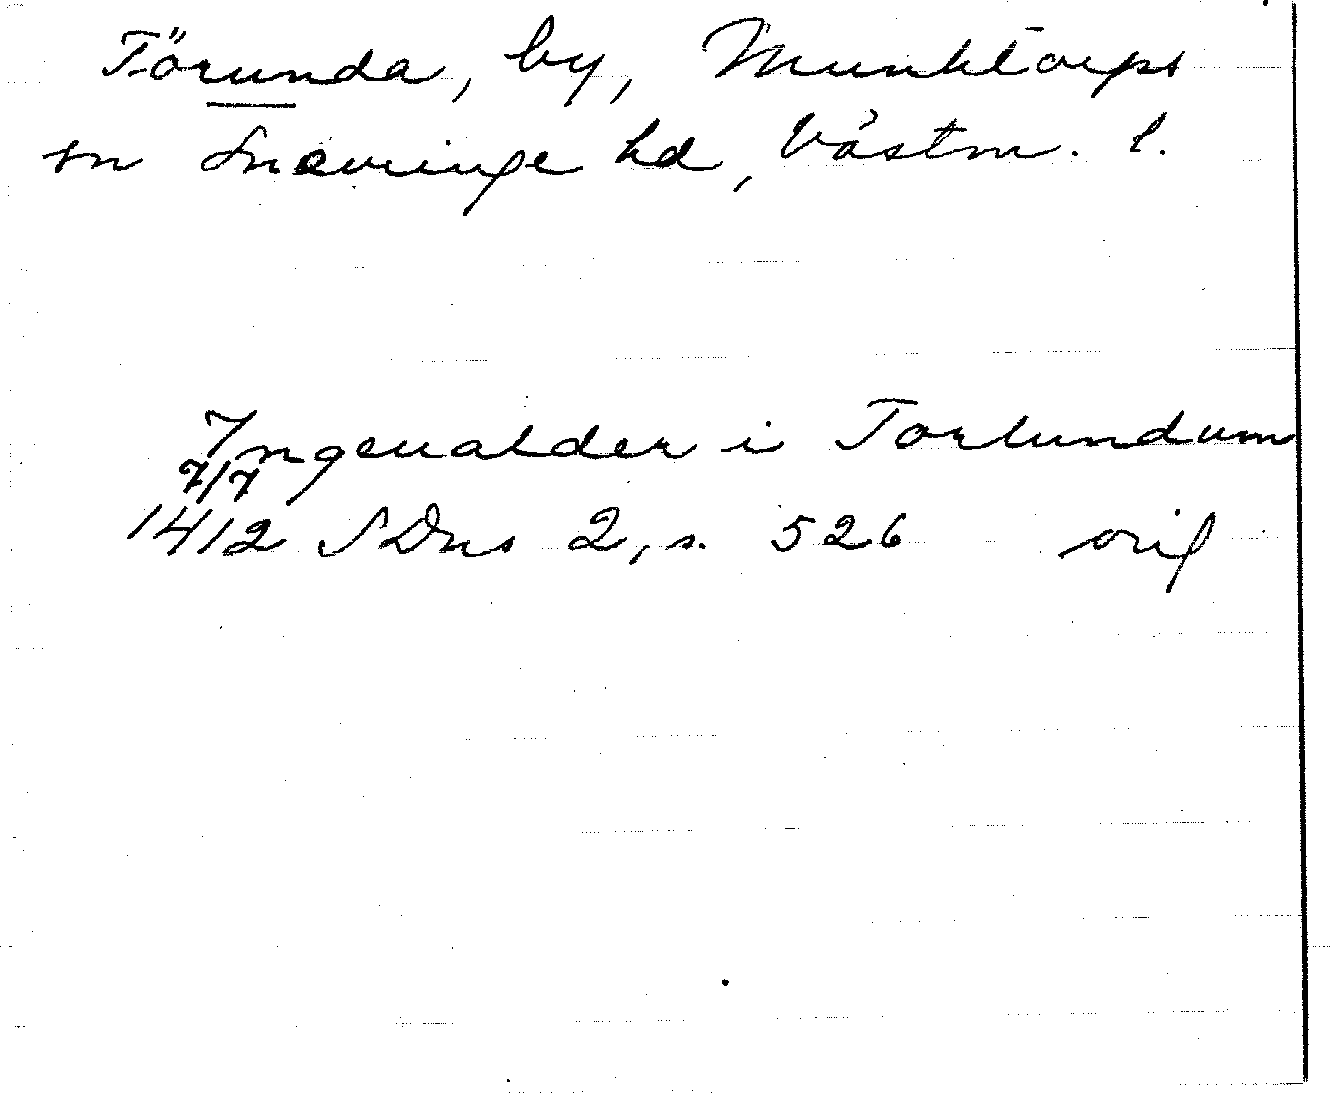 Törunda, by, Munktorps
sn Snevringe hd, Västm. l.
Ingeualder i Torlundum
7/7
1412 SDns 2, s. 526 orig